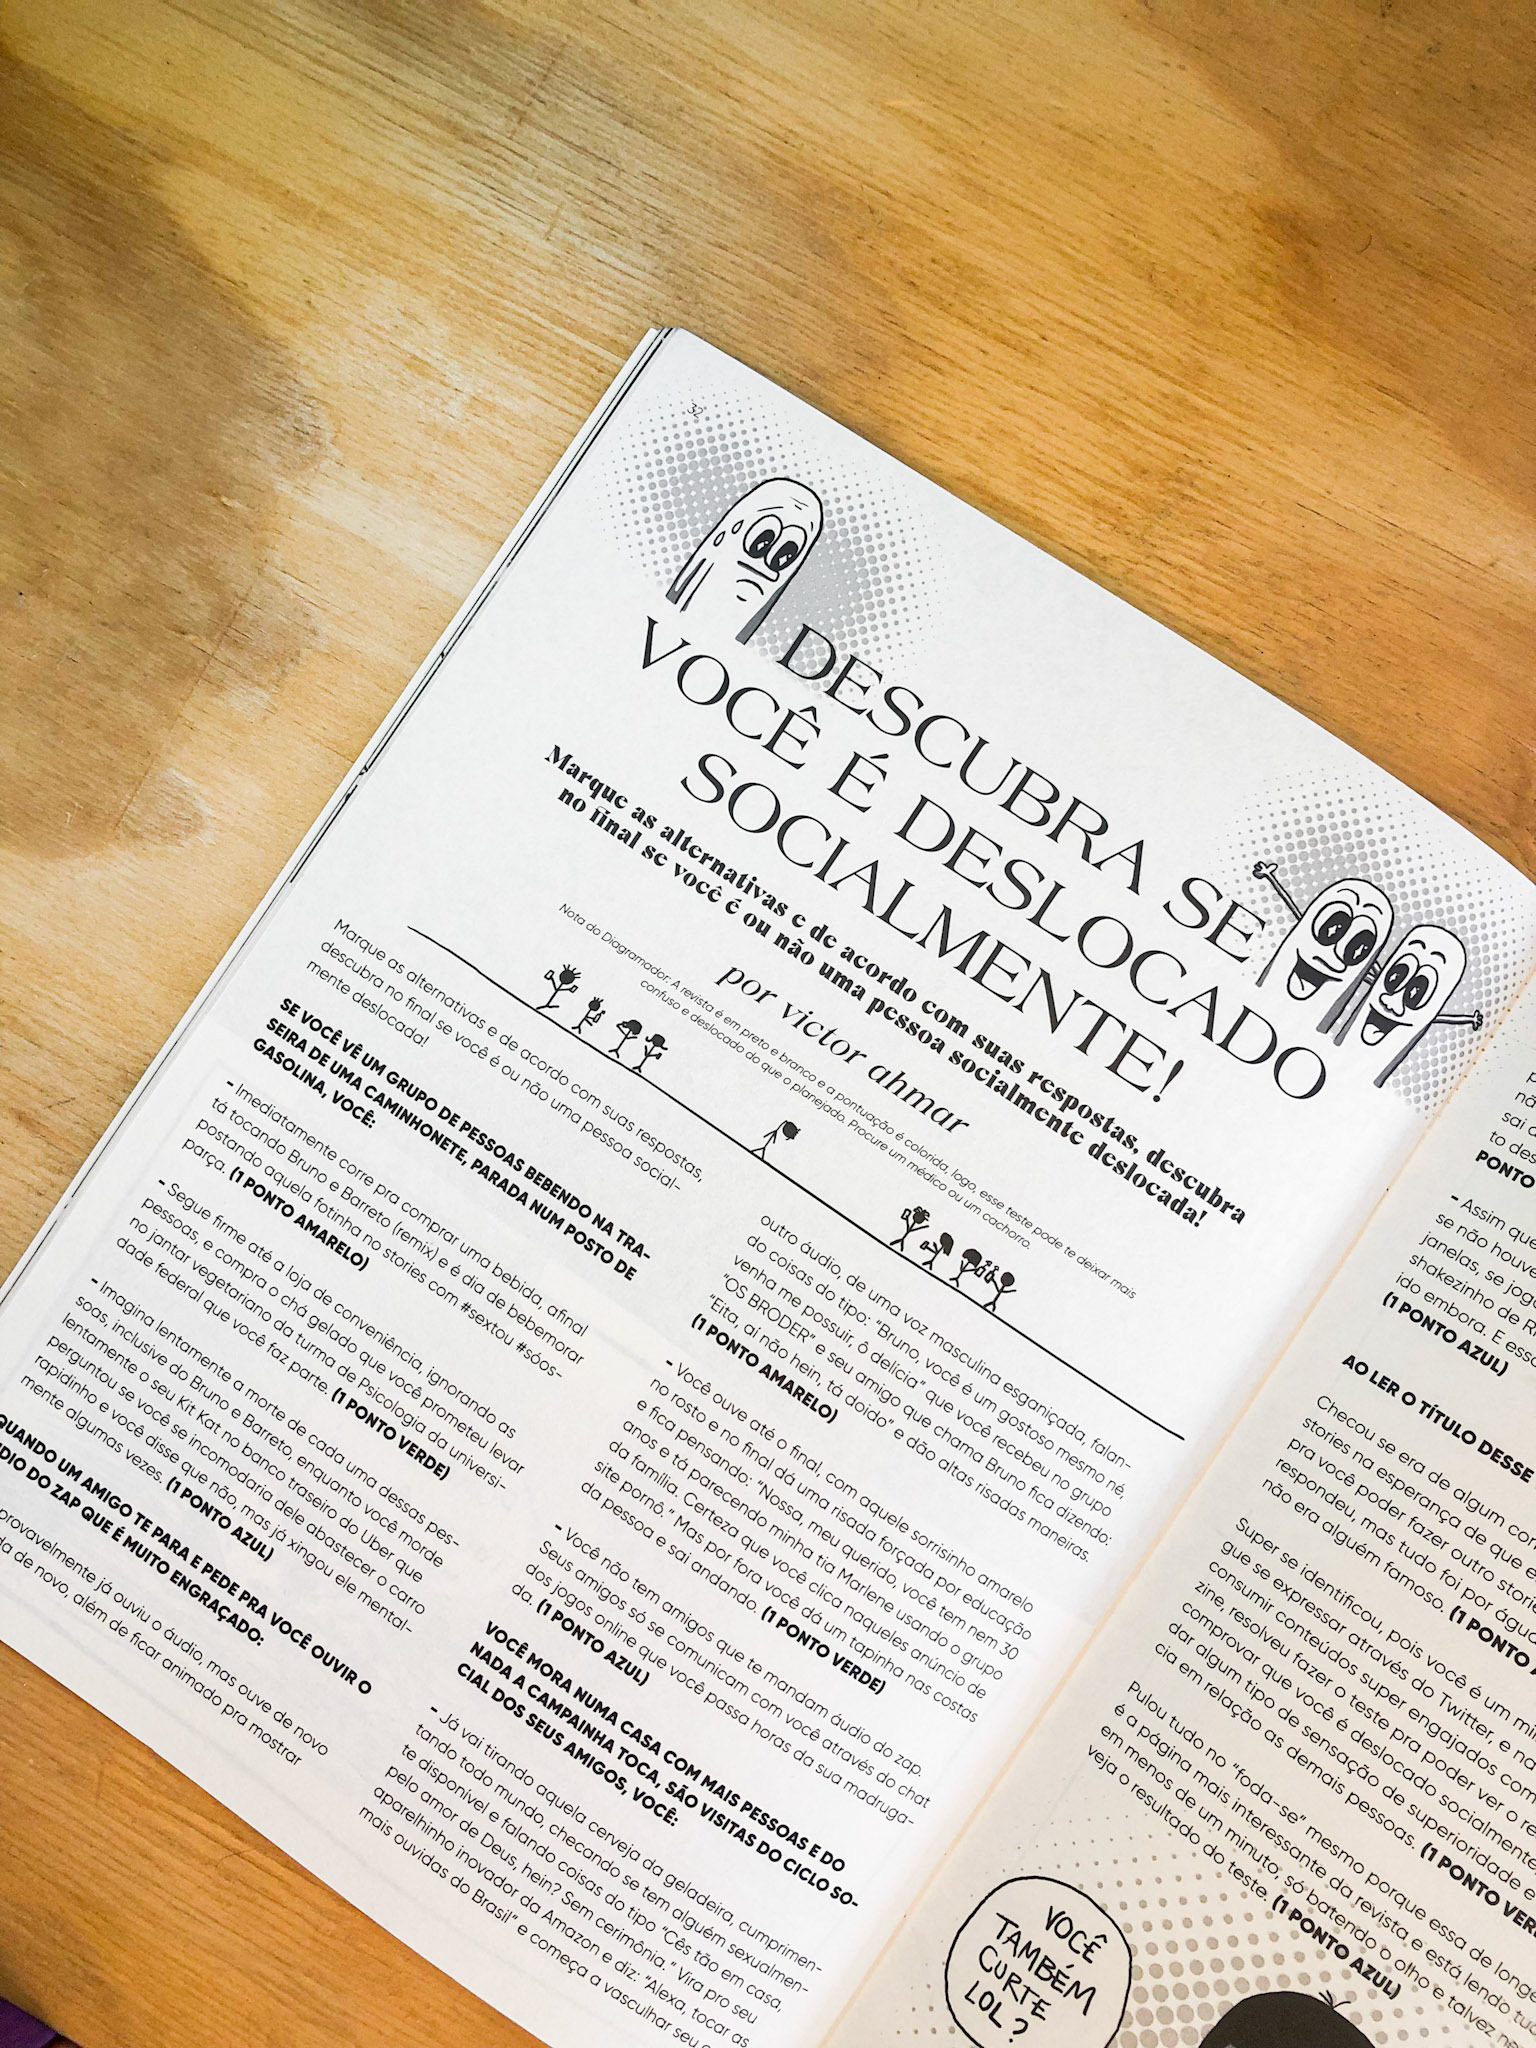 32
DESCUBRA SE
VOCÊ É DESLOCADO
SOCIALMENTE!
Marque as alternativas e de acordo com suas respostas, descubra
no final se você é ou não uma pessoa socialmente deslocada!
por victor ahmar
Nota do Diagramador: A revista é em preto e branco e a pontuação é colorida, logo, esse teste pode te deixar mais
confuso e deslocado do que o planejado. Procure um médico ou um cachorro.
Marque as alternativas e de acordo com suas respostas,
descubra no final se você é ou não uma pessoa social-
mente deslocada!
SE VOCÊ VÊ UM GRUPO DE PESSOAS BEBENDO NA TRA-
SEIRA DE UMA CAMINHONETE, PARADA NUM POSTO DE
GASOLINA, VOCÊ:
- Imediatamente corre pra comprar uma bebida, afinal
tá tocando Bruno e Barreto (remix) e é dia de bebemorar
postando aquela fotinha no stories com #sextou #sóos-
parça. (1 PONTO AMARELO)
- Segue firme até a loja de conveniência, ignorando as
pessoas, e compra o chá gelado que você prometeu levar
no jantar vegetariano da turma de Psicologia da universi-
dade federal que você faz parte. (1 PONTO VERDE)
- Imagina lentamente a morte de cada uma dessas pes-
soas, inclusive do Bruno e Barreto, enquanto você morde
lentamente o seu Kit Kat no banco traseiro do Uber que
perguntou se você se incomodaria dele abastecer o carro
rapidinho e você disse que não, mas já xingou ele mental-
mente algumas vezes. (1 PONTO AZUL)
QUANDO UM AMIGO TE PARA E PEDE PRA VOCÊ OUVIR O
DO ZAP QUE É MUITO ENGRAÇADO:
já ouviu o áudio, mas ouve de novo
de novo, além de ficar animado pra mostrar
outro áudio, de uma voz masculina esganiçada, falan-
do coisas do tipo: "Bruno, você é um gostoso mesmo né,
venha me possuir, ô delícia" que você recebeu no grupo
"OS BRODER" e seu amigo que chama Bruno fica dizendo:
"Eita, aí não hein, tá doido" e dão altas risadas maneiras.
(1 PONTO AMARELO)
- Você ouve até o final, com aquele sorrisinho amarelo
no rosto e no final dá uma risada forçada por educação
e fica pensando: "Nossa, meu querido, você tem nem 30
anos e tá parecendo minha tia Marlene usando o grupo
da família. Certeza que você clica naqueles anúncio de
site pornô." Mas por fora você dá um tapinha nas costas
da pessoa e sai andando. (1 PONTO VERDE)
- Você não tem amigos que te mandam áudio do zap.
Seus amigos só se comunicam com você através do chat
dos jogos online que você passa horas da sua madruga-
da. (1 PONTO AZUL)
VOCÊ MORA NUMA CASA COM MAIS PESSOAS E DO
NADA A CAMPAINHA TOCA, SÃO VISITAS DO CICLO SO-
CIAL DOS SEUS AMIGOS, VOCÊ:
- Já vai tirando aquela cerveja da geladeira, cumprimen-
tando todo mundo, checando se tem alguém sexualmen-
te disponível e falando coisas do tipo "Cês tão em casa,
pelo amor de Deus, hein? Sem cerimônia." Vira pro seu
aparelhinho inovador da Amazon e diz: "Alexa, tocar as
mais ouvidas do Brasil" e começa a vasculhar seu
sai
to des
PONTO
- Assim que
se não houve
janelas, se jog
shakezinho de
ido embora. E essa
(1 PONTO AZUL)
AO LER O TÍTULO DESSE
Checou se era de algum
stories na esperança de que
pra você poder fazer outro
respondeu, mas tudo foi por água
não era alguém famoso. (1 PONTO
Super se identificou, pois você é um
gue se expressar através do Twitter, e
consumir conteúdos super engajados com
zine, resolveu fazer o teste pra poder ver o
comprovar que você é deslocado socialmente
dar algum tipo de sensação de superioridade e
cia em relação as demais pessoas. (1 PONTO
Pulou tudo no "foda-se" mesmo porque essa de longe
é a página mais interessante da revista e está lendo
em menos de um minuto, só batendo o olho e talvez
veja o resultado do teste. (1 PONTO AZUL)
VOCÊ
TAMBÉM
CURTE
LOL?